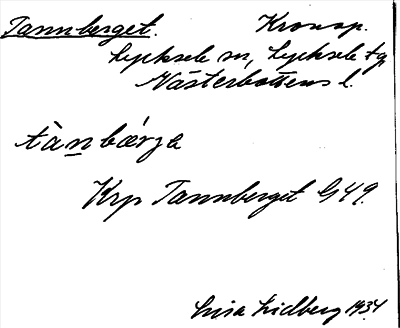 Tannberget. Kronop.
Lycksele sn, Lycksele tg
Västerbottens l.
tànbærja
Krp Tannberget G49.
Lisa Lidberg 1934